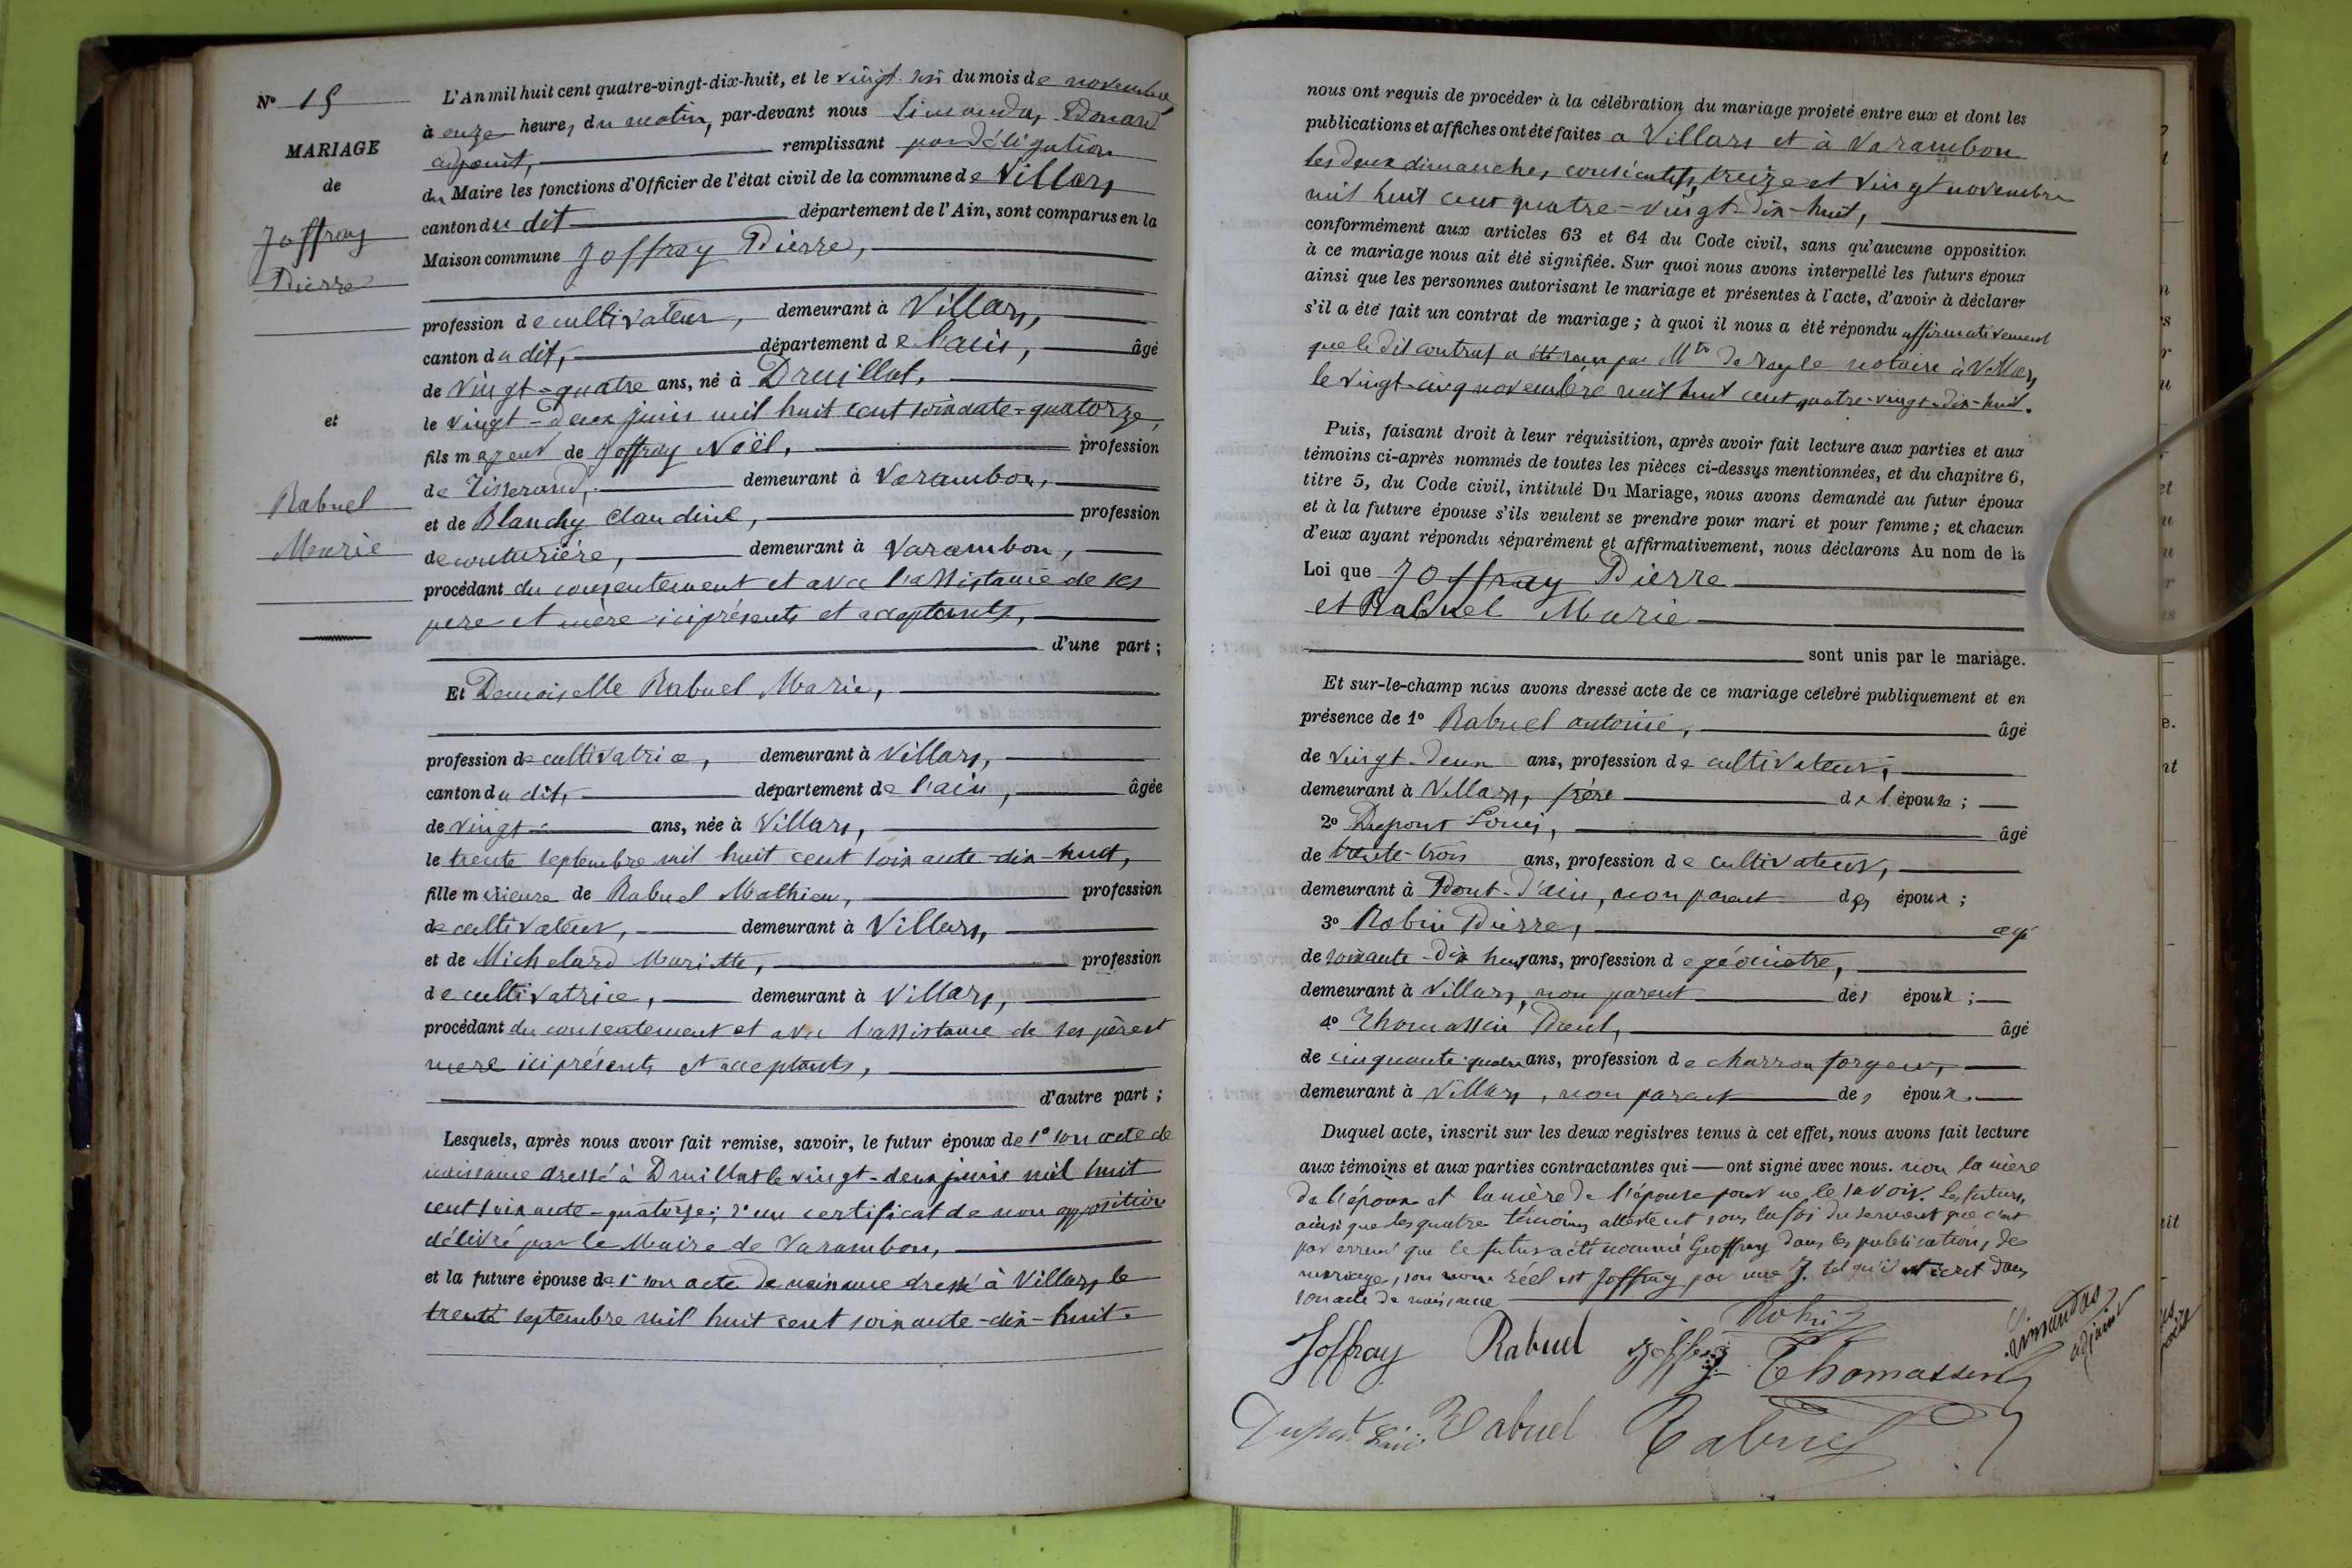 N° 15
MARIAGE
de
Joffray
Pierre
et
Rabuel
Marie
L'An mil huit cent quatre-vingt-dix-huit, et le vingt six du mois de novembre
à onze heures du matin, par-devant nous Limandas, Edouard
adjoint, remplissant par Déligation
du Maire les fonctions d'Officier de l'état civil de la commune de Villars
canton du dit département de l'Ain, sont comparus en la
Maison commune Joffray Pierre,
profession de cultivateur, demeurant à Villars,
canton du dit, département de l'ain, âgé
de vingt-quatre ans, né à Druillat,
le vingt-deux juin mil huit cent soixante-quatorze,
fils majeur de Joffray Noël, profession
de Tisserand, demeurant à Varambon,
et de Blanchy Claudine, profession
de couturière, demeurant à Varambon,
procédant du consentement et avec l'assistance de ses
père et mère ici présents et acceptants,
d'une part ;
Et Demoiselle Rabuel Marie,
profession de cultivatrice, demeurant à Villars,
canton du dit, département de l'ain, âgée
de vingt ans, née à Villars,
le trente septembre mil huit cent soixante-dix-huit,
fille mineure de Rabuel Mathieu, profession
de cultivateur, demeurant à Villars,
et de Michelard Mariette, profession
de cultivatrice, demeurant à Villars,
procédant du consentement et avec l'assistance de ses père et
mere ici présents et acceptants,
d'autre part ;
Lesquels, après nous avoir fait remise, savoir, le futur époux de 1° son acte de
naissance dressé à Druillat le vingt-deux juin mil huit
cent soixante-quatorze; 2° un certificat de non opposition
délivré par le Maire de Varambon,
et la future épouse de 1° son acte de naissance dressé à Villars le
trente septembre mil huit cent soixante-dix-huit.
nous ont requis de procéder à la célébration du mariage projeté entre eux et dont les
publications et affiches ont été faites a Villars et à Varambon
les deux dimanches consécutifs, treize et vingt novembre
mil huit cent quatre-vingt-dix-huit,
conformément aux articles 63 et 64 du Code civil, sans qu'aucune opposition
à ce mariage nous ait été signifiée. Sur quoi nous avons interpellé les futurs époux
ainsi que les personnes autorisant le mariage et présentes à l'acte, d'avoir à déclarer
s'il a été fait un contrat de mariage ; à quoi il nous a été répondu affirmativement
que le dit contrat a été reçu par Mtre notaire à Villars
le vingt-cinq novembre mil huit cent quatre-vingt-dix-huit.
Puis, faisant droit à leur réquisition, après avoir fait lecture aux parties et aux
témoins ci-après nommés de toutes les pièces ci-dessus mentionnées, et du chapitre 6,
titre 5, du Code civil, intitulé Du Mariage, nous avons demandé au futur époux
et à la future épouse s'ils veulent se prendre pour mari et pour femme ; et chacun
d'eux ayant répondu séparément et affirmativement, nous déclarons Au nom de la
Loi que Joffray Pierre
et Rabuel Marie
sont unis par le mariage.
Et sur-le-champ nous avons dressé acte de ce mariage célébré publiquement et en
présence de 1° Rabuel antoine, âgé
de vingt-deux ans, profession de cultivateur,
demeurant à Villars, frère de l'épouse ;
2° Dupont Louis, âgé
de trente-trois ans, profession de cultivateur,
demeurant à Pont-d'ain, non parent des époux ;
3° Robin Pierre, âgé
de soixante-dix huit ans, profession de géomètre,
demeurant à Villars, non parent des époux ;
4° Thomassin Paul, âgé
de cinquante quatre ans, profession de charron forgeur,
demeurant à Villars, non parent des époux.
Duquel acte, inscrit sur les deux registres tenus à cet effet, nous avons fait lecture
aux témoins et aux parties contractantes qui ont signé avec nous. non la mère
de l'époux et la mère de l'épouse pour ne le savoir. Les futurs,
ainsi que les quatre témoins attestent sous la foi du serment que c'est
par erreur que le futur a été nommé Geoffray dans les publications de
mariage, son nom réel est Joffray par une J. tel qu'il est écrit dans
son acte de naissance
Joffray Rabuel Joffray Robin Limandas adjoint
Thomassin
Dupont Louis Rabuel Rabuel